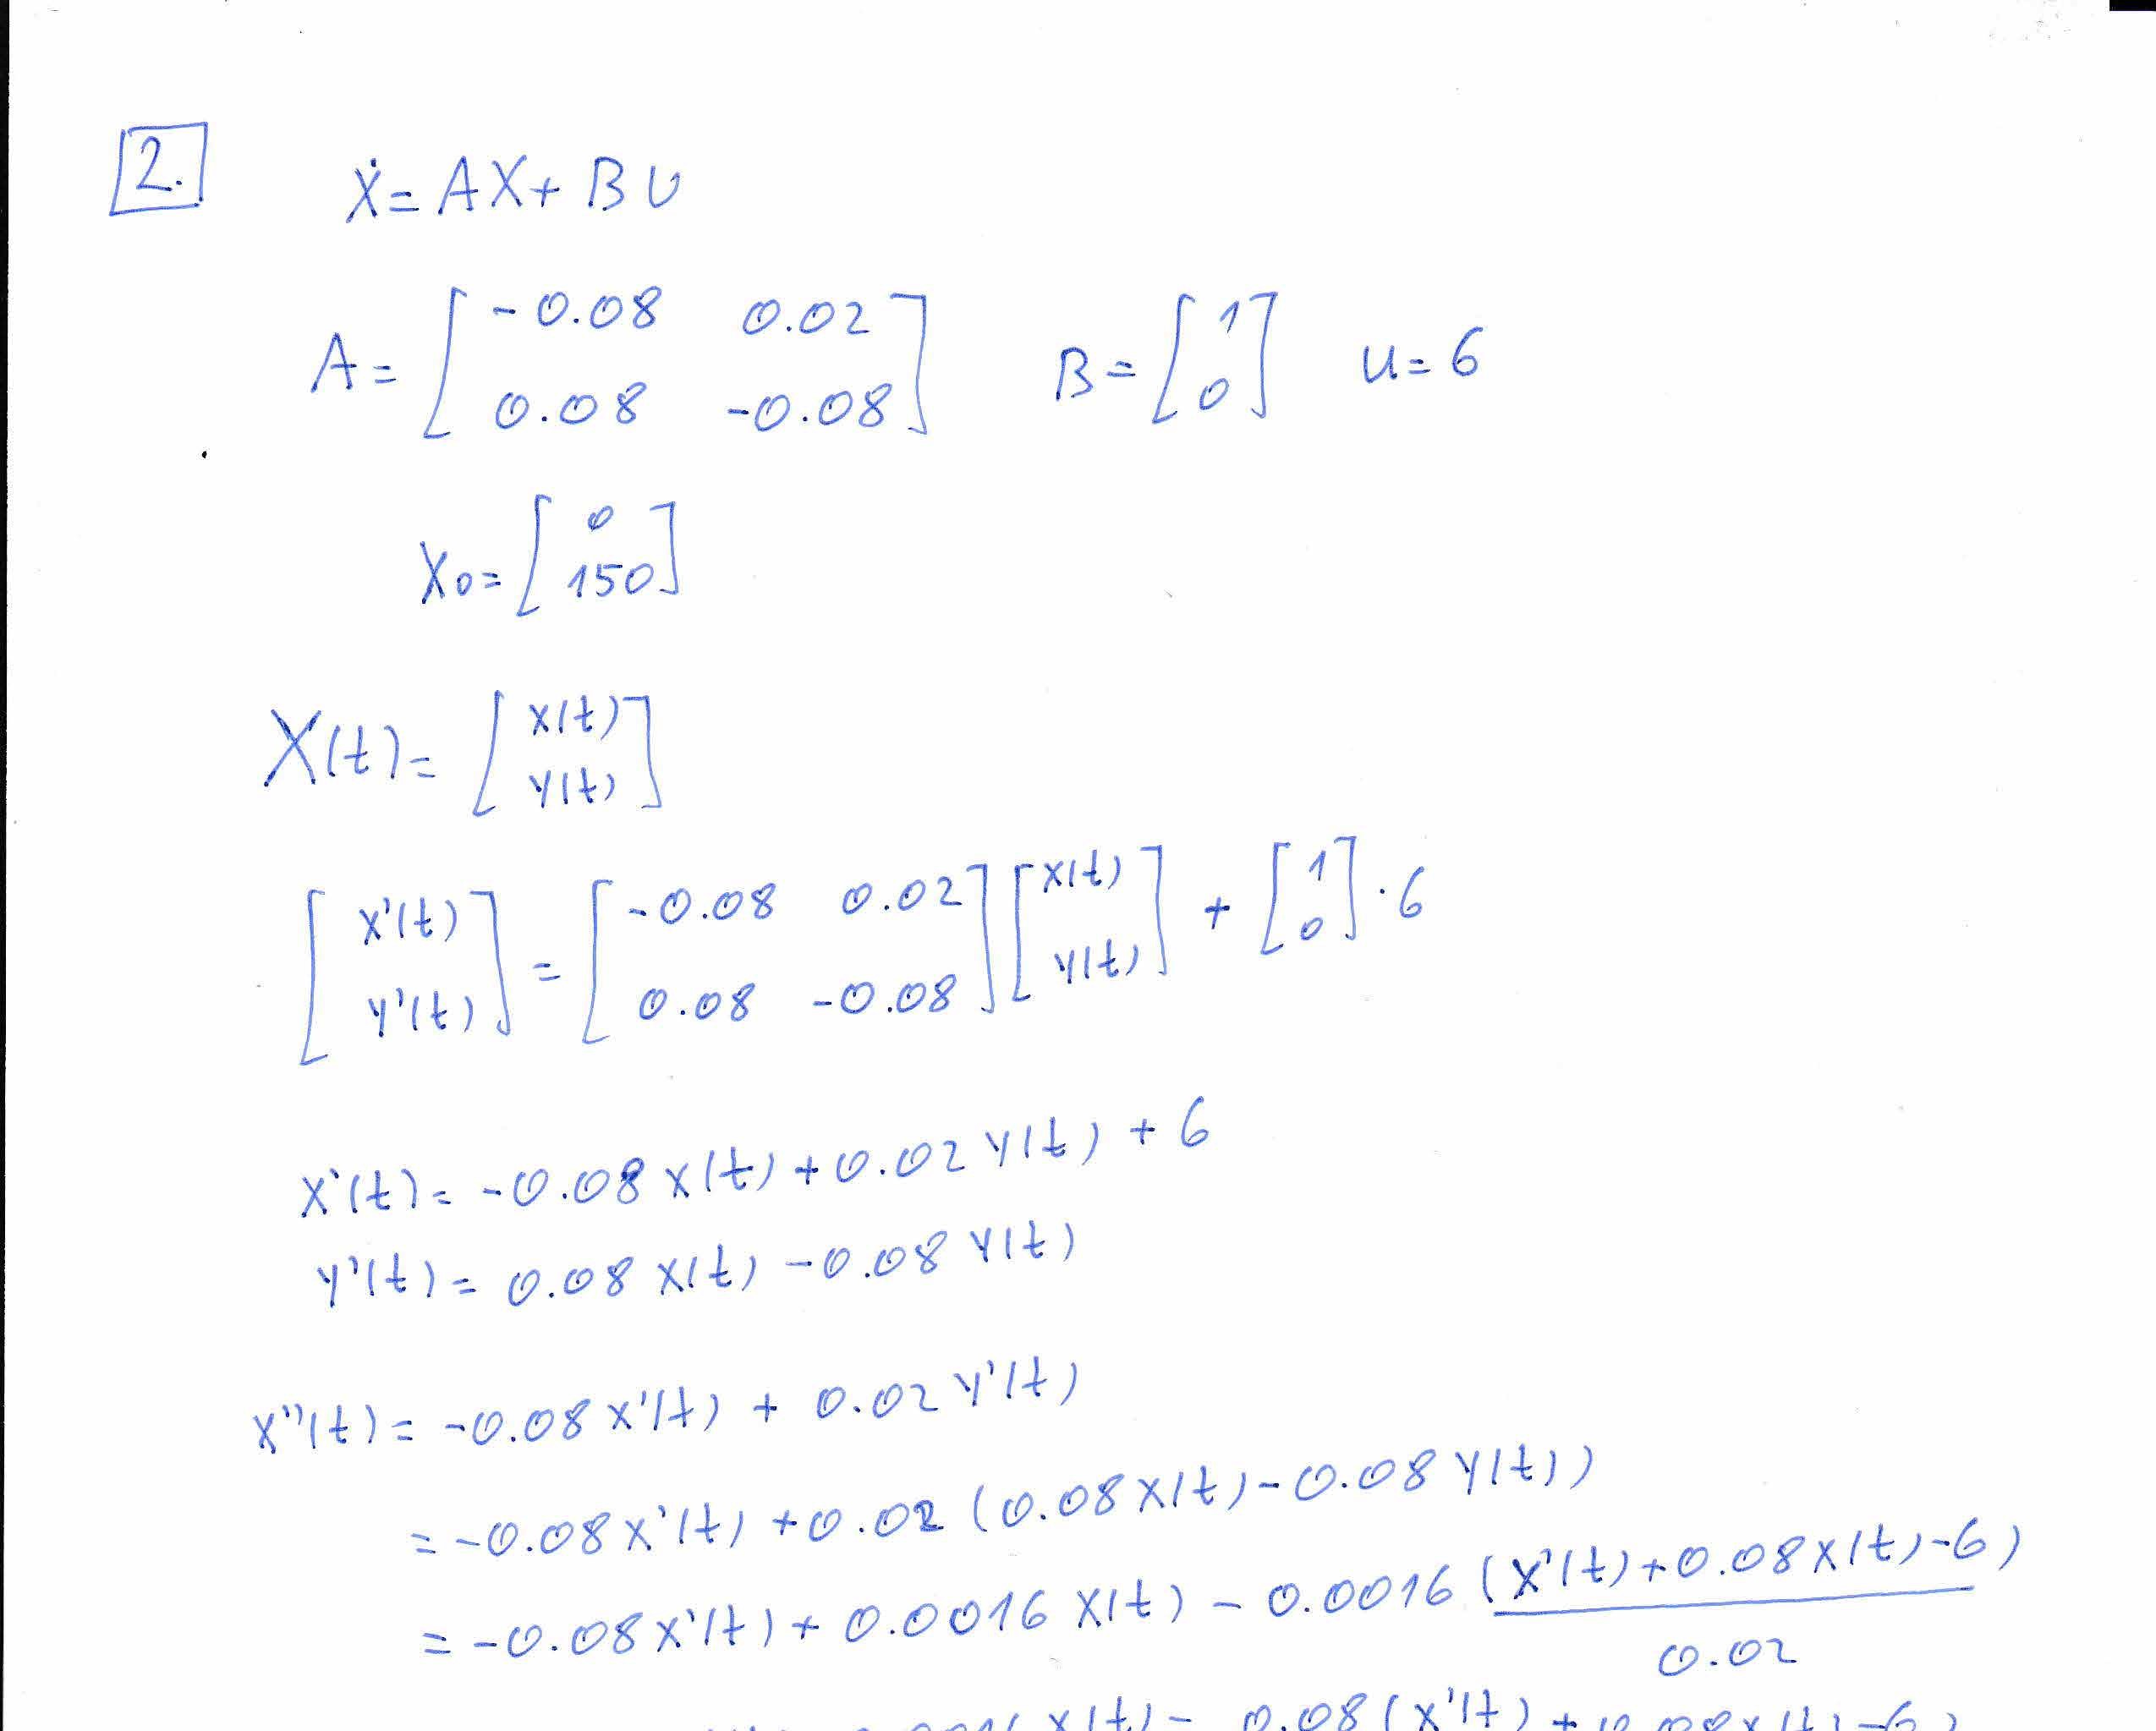 2.
Ẋ = AX + BU
A = [ -0.08 0.02
0.08 -0.08 ] B = [ 1
0 ] u = 6
X0 = [ 0
150 ]
X(t) = [ x(t)
y(t) ]
[ x'(t)
y'(t) ] = [ -0.08 0.02
0.08 -0.08 ] [ x(t)
y(t) ] + [ 1
0 ] · 6
x'(t) = -0.08 x(t) + 0.02 y(t) + 6
y'(t) = 0.08 x(t) - 0.08 y(t)
x''(t) = -0.08 x'(t) + 0.02 y'(t)
= -0.08 x'(t) + 0.02 (0.08 x(t) - 0.08 y(t))
= -0.08 x'(t) + 0.0016 x(t) - 0.0016 (x'(t) + 0.08 x(t) - 6)
0.02
x(t) - 0.08 (x'(t) + 0.08 x(t) - 6)